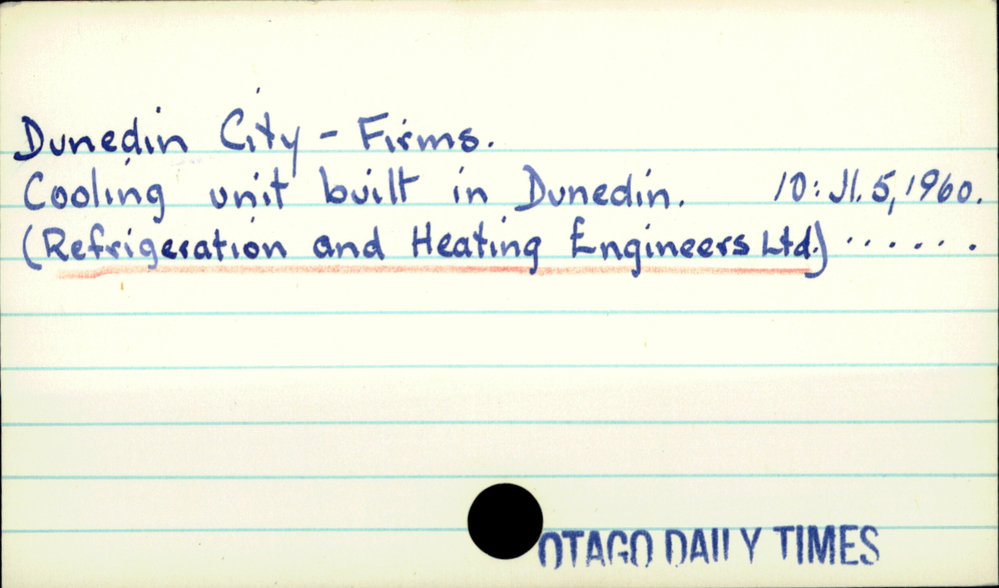 Dunedin City - Firms.
Cooling unit built in Dunedin. 10: Jl. 5, 1960.
(Refrigeration and Heating Engineers Ltd.) ......
OTAGO DAILY TIMES